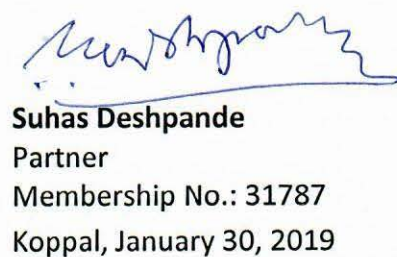 Suhas Deshpande
Partner
Membership No.: 31787
Koppal, January 30, 2019